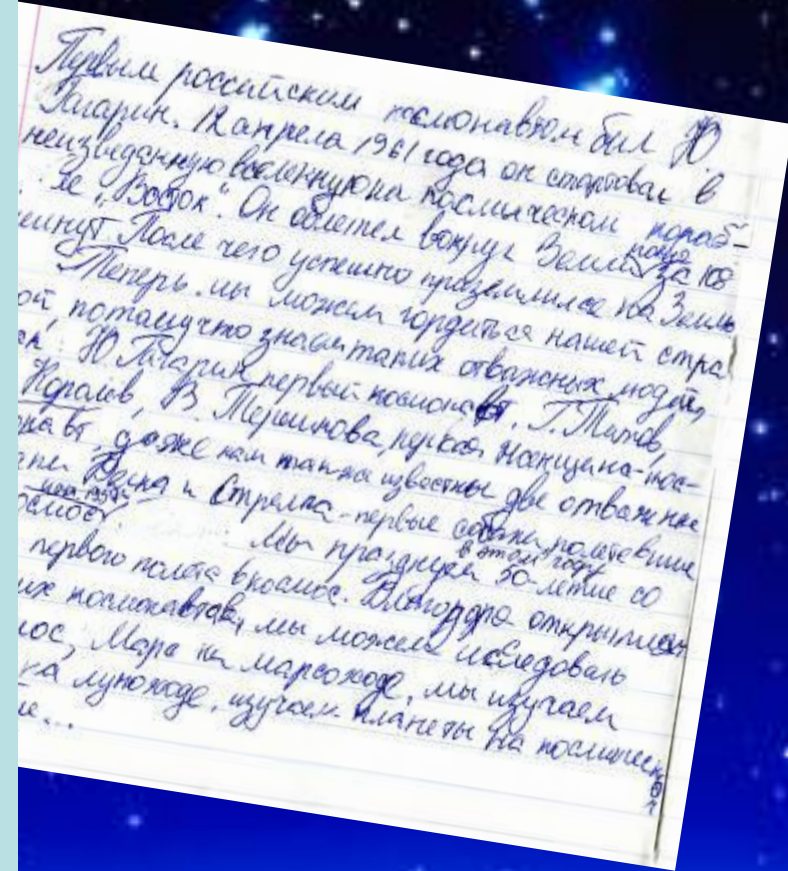 Первым российским космонавтом был Ю.
Гагарин. 12 апреля 1961 года он стартовал в
неизведанную вселенную на космическом кораб-
ле „Восток“. Он облетел вокруг Земли за 108
минут После чего успешно приземлился на Землю
Теперь мы можем гордиться нашей стра
ой, потому что знаем таких отважных людей,
как: Ю Гагарин первый космонавт, Г. Титов,
Королёв, В. Терешкова, первая женщина-кос-
онавт, даже нам также известны две отважные
Белка и Стрелка - первые собаки полетевшие
космос.
Мы празднуем в этом году 50-летие со
первого полёта в космос. Благодаря открытиям
их космонавтов, мы можем исследовать
мос, Марс на марсоходе, мы изучаем
на луноходе, изучаем планеты на космическ
ле...